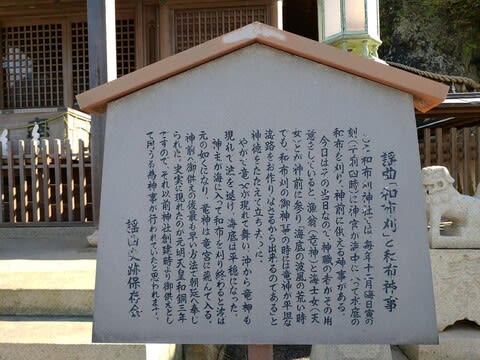 謡曲「和布刈」と和布刈神事
ここ和布刈神社では、毎年十二月晦日寅の
刻(午前四時)に神官が海中に入って水底の
和布を刈り、神前に供える神事がある。
今日はその当日なので、神職の者がその用
意をしていると、漁翁(竜神)と海士女(天
女)とが神前に参り「海底の波風の荒い時
でも、和布刈の御神事の時には竜神が平坦な
海路をお作りなさるから出来るのである」と
神徳をたたえて立ち去った。
やがて竜女が現れて舞い、沖から竜神も
現れて波を退け、海底は平穏になった。
神主が海に入って和布を刈り終わると波は
元の如くになり、竜神は竜宮に飛んで入る。
神前へ御供えの後最も早い方法で朝廷へ奉じ
られた。史実に現れたのが元明天皇和銅三年
ですので、それ以前神社創建時より御供えとし
て同うる為神事が行われていたと思われます。
謡曲史跡保存会